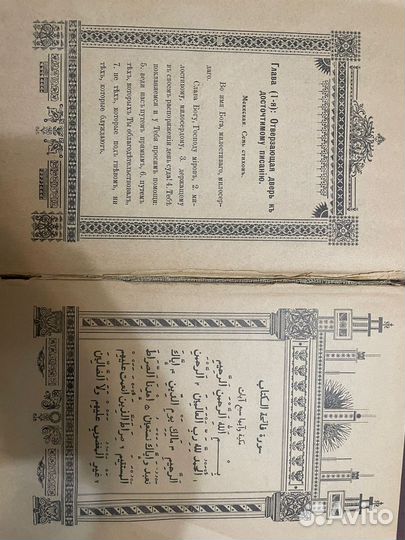 Глава (1-я): Отверзающая дверь къ
досточтимому писанію.
Меккская. Семь стиховъ.
Во имя Бога, милостиваго, милосер-
даго.
(Слава Богу, Господу міровъ, 2. ми-
лостивому, милосердому, 3. держащему
въ своемъ распоряженіи день суда! 4. Тебѣ
поклоняемся и у Тебя просимъ помощи:
5. веди насъ путемъ прямымъ, 6. путемъ
тѣхъ, которыхъ Ты облагодѣтельствовалъ,
7. не тѣхъ, которые подъ гнѣвомъ, ни
тѣхъ, которые блуждаютъ.
سورة فاتحة الكتاب
مكية وآيها سبع آيات
بسم الله الرحمن الرحيم
الحمد لله رب العالمين ٢ الرحمن
الرحيم ٣ مالك يوم الدين ٤ إياك
نعبد وإياك نستعين ٥ اهدنا الصراط
المستقيم ٦ صراط الذين أنعمت عليهم
٧ غير المغضوب عليهم ولا الضالين
Avito